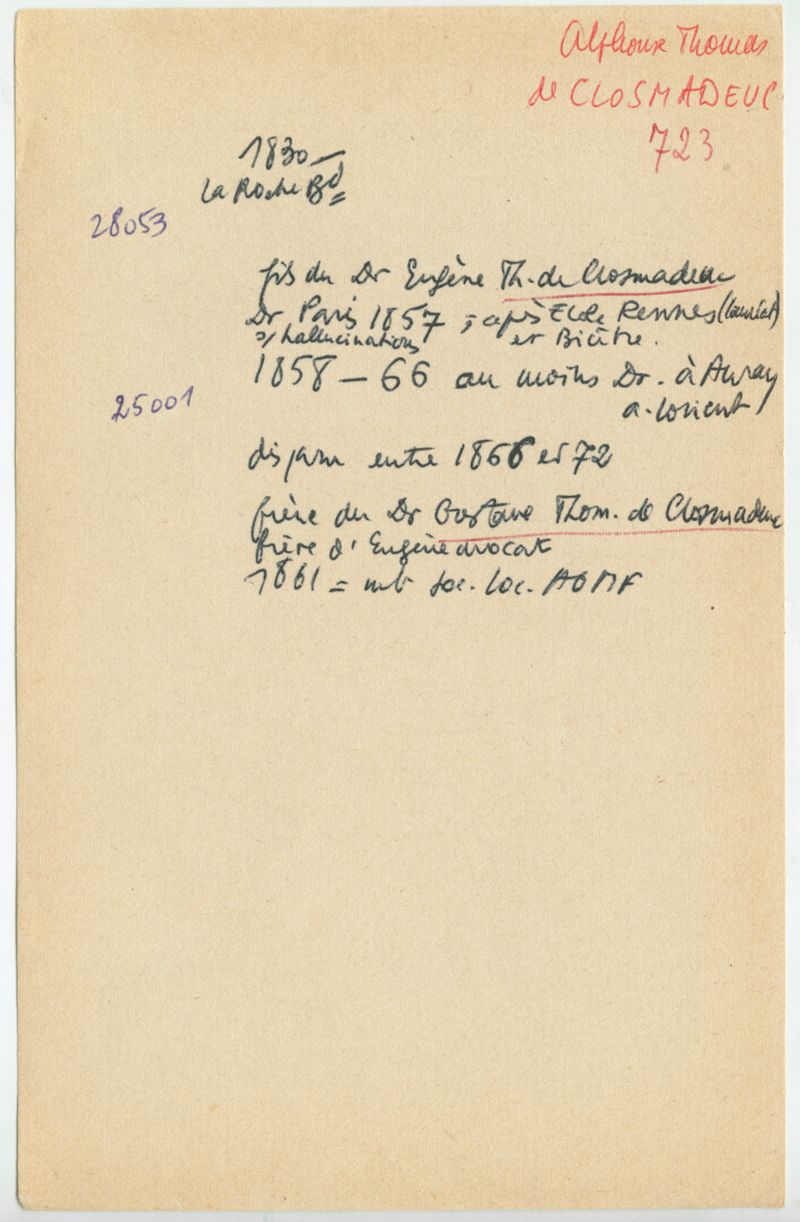 Alphonse Thomas
de CLOSMADEUC
723
1830 –
La Roche Bd
28053
fils du Dr Eugène Th. de Closmadeuc
Dr Paris 1857 ; après Ecole Rennes (lauréat)
s/ hallucinations et Bicêtre.
1858 – 66 au moins Dr. à Auray
25001
a. Lorient
disparu entre 1866 et 72
frère du Dr Gustave Thom. de Closmadeuc
frère d'Eugène avocat
1861 = mb Soc. Loc. AGMF